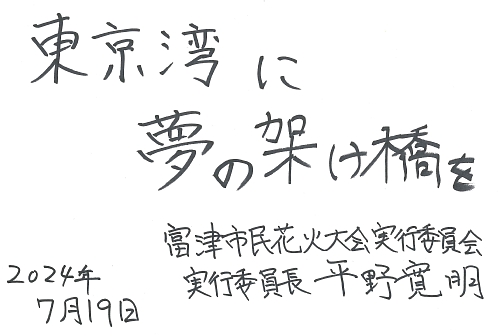 東京湾に
夢の架け橋を
富津市民花火大会実行委員会
実行委員長 平野寛明
2024年
7月19日